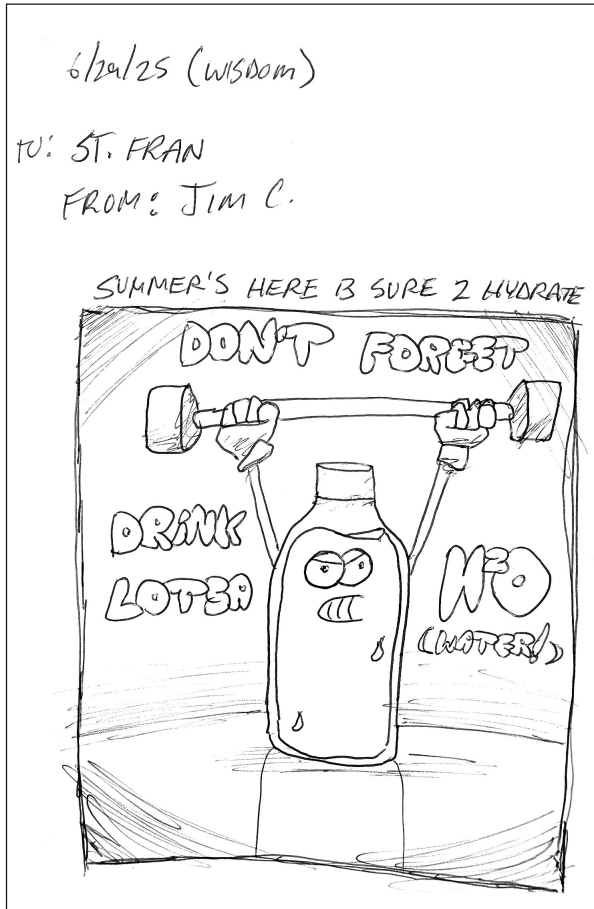 6/29/25 (WISDOM)
TO: ST. FRAN
FROM: JIM C.
SUMMER'S HERE B SURE 2 HYDRATE
DON'T FORGET
DRINK
LOTSA
H2O
(WATER!)